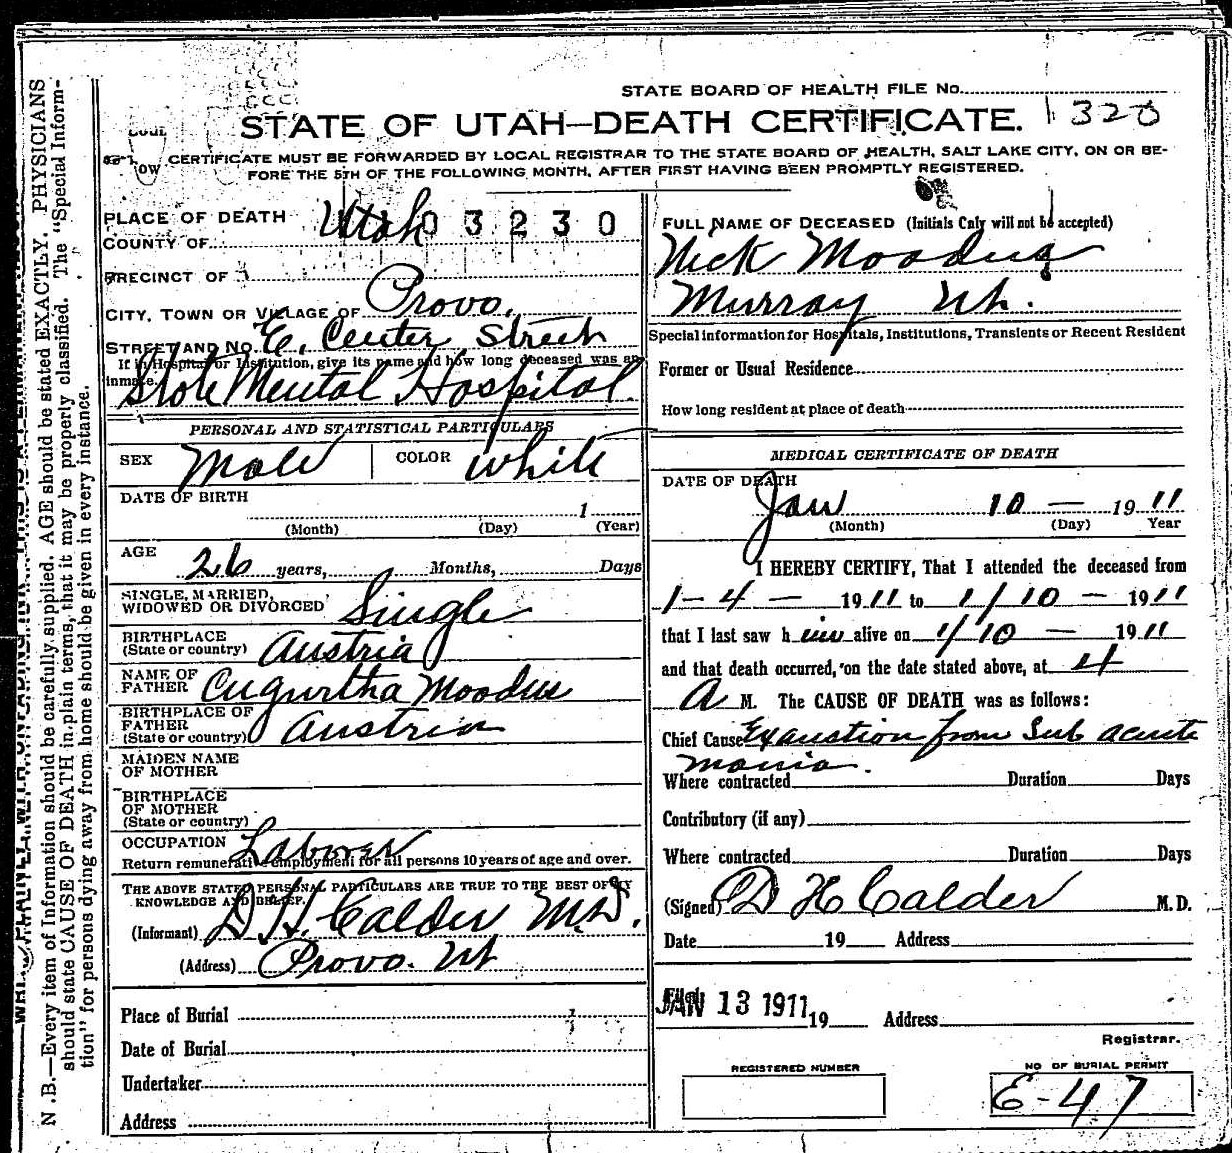 STATE BOARD OF HEALTH FILE No.
STATE OF UTAH—DEATH CERTIFICATE. 1320
CERTIFICATE MUST BE FORWARDED BY LOCAL REGISTRAR TO THE STATE BOARD OF HEALTH, SALT LAKE CITY, ON OR BE-
FORE THE 5TH OF THE FOLLOWING MONTH, AFTER FIRST HAVING BEEN PROMPTLY REGISTERED.
PLACE OF DEATH
COUNTY OF Utah 03230
PRECINCT OF
CITY, TOWN OR VILLAGE OF Provo.
STREET AND No. E. Center Street
If in Hospital or Institution, give its name and how long deceased was an
inmate.
State Mental Hospital.
PERSONAL AND STATISTICAL PARTICULARS
SEX Male COLOR white
DATE OF BIRTH
1
(Month) (Day) (Year)
AGE
26 years, Months, Days
SINGLE, MARRIED,
WIDOWED OR DIVORCED Single
BIRTHPLACE
(State or country) Austria
NAME OF
FATHER Cugurtha Moodus
BIRTHPLACE OF
FATHER
(State or country) Austria
MAIDEN NAME
OF MOTHER
BIRTHPLACE
OF MOTHER
(State or country)
OCCUPATION Laborer
Return remunerative employment for all persons 10 years of age and over.
THE ABOVE STATED PERSONAL PARTICULARS ARE TRUE TO THE BEST OF MY
KNOWLEDGE AND BELIEF.
(Informant) D. H. Calder M.D.
(Address) Provo. Ut
Place of Burial
Date of Burial
Undertaker
Address
FULL NAME OF DECEASED (Initials Only will not be accepted)
Nick Moodug
Murray Ut.
Special information for Hospitals, Institutions, Transients or Recent Resident
Former or Usual Residence
How long resident at place of death
MEDICAL CERTIFICATE OF DEATH
DATE OF DEATH
Jan 10 — 1911
(Month) (Day) Year
I HEREBY CERTIFY, That I attended the deceased from
1-4 — 1911 to 1/10 — 1911
that I last saw him alive on 1/10 — 1911
and that death occurred, on the date stated above, at 4
A M. The CAUSE OF DEATH was as follows:
Chief Cause Exaustion from Sub acute
mania.
Where contracted Duration Days
Contributory (if any)
Where contracted Duration Days
(Signed) D H Calder M.D.
Date 19 Address
JAN 13 1911 19 Address
Registrar.
REGISTERED NUMBER
NO OF BURIAL PERMIT
E-47
N.B.—Every item of information should be carefully supplied. AGE should be stated EXACTLY. PHYSICIANS
should state CAUSE OF DEATH in plain terms, that it may be properly classified. The "Special Inform-
tion" for persons dying away from home should be given in every instance.